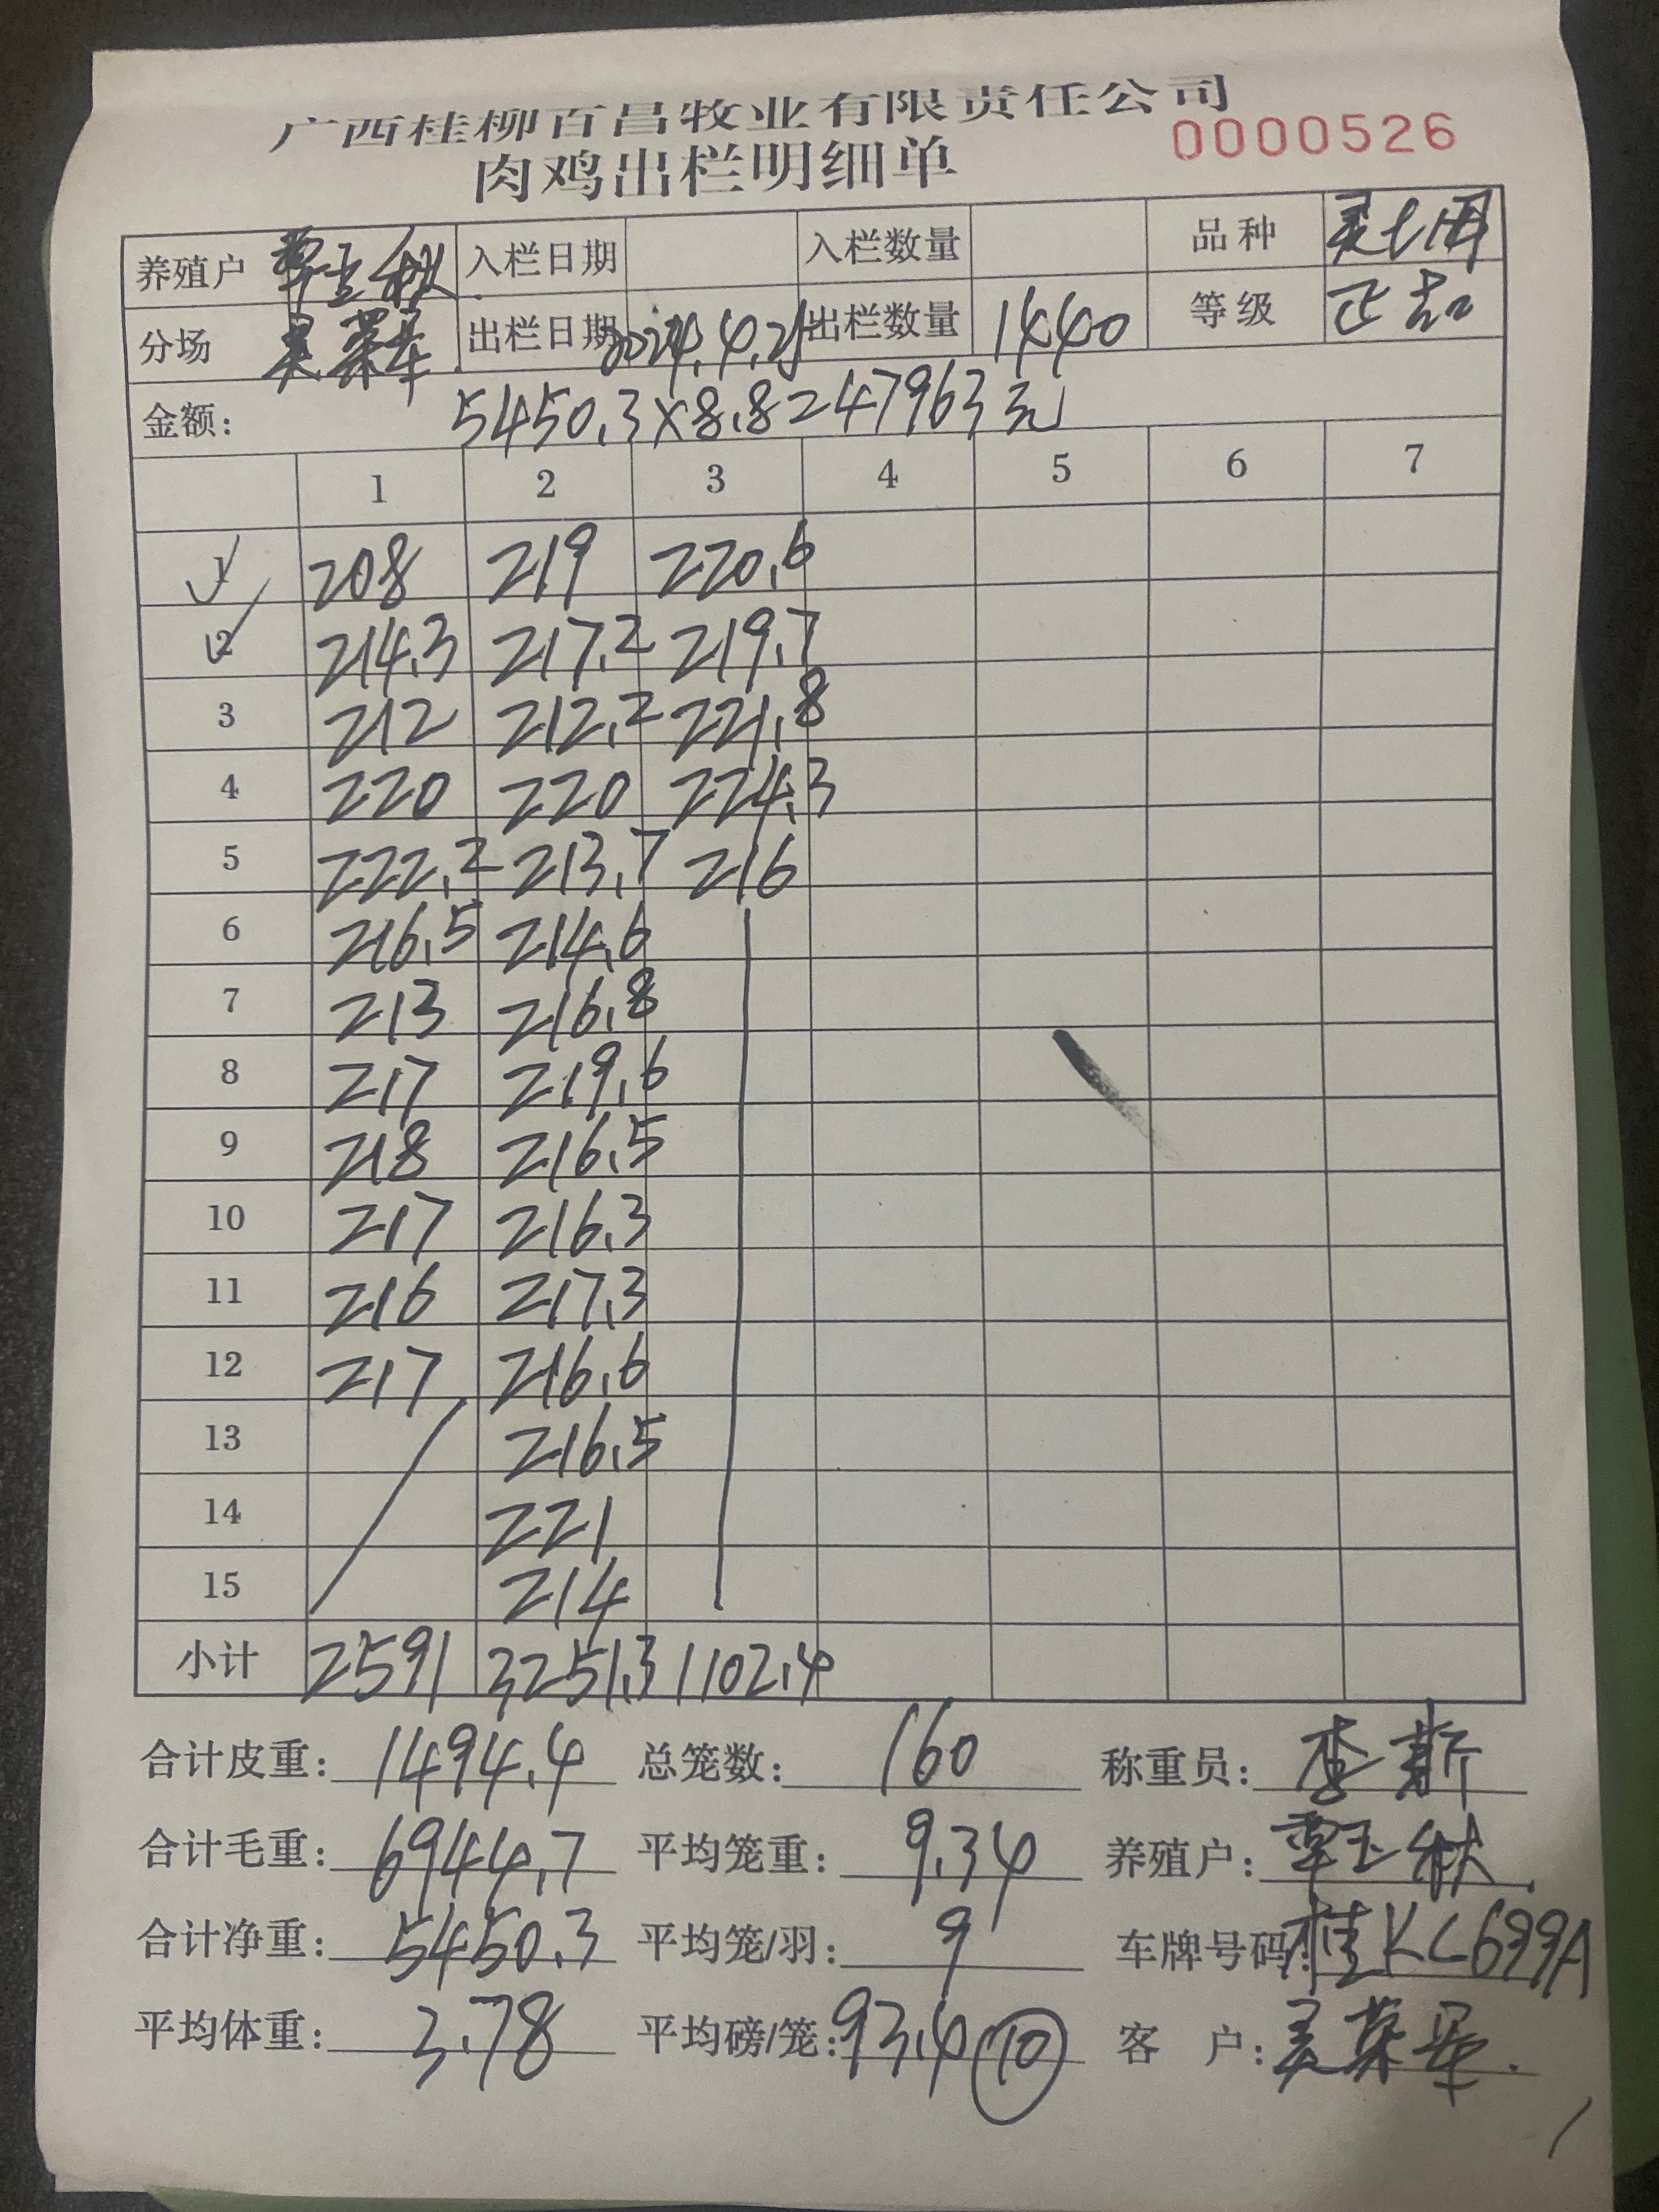 广西桂柳百昌牧业有限责任公司
0000526
肉鸡出栏明细单
养殖户 覃玉秋 入栏日期 入栏数量 品种
分场 出栏日期 2024.4.21 出栏数量 1440 等级 正品
金额: 5450.3×8.8=47963元
1 2 3 4 5 6 7
1 208 219 220.6
2 214.3 217.2 219.7
3 212 212.2 221.8
4 220 220 224.3
5 222.2 213.7 216
6 216.5 214.6
7 213 216.8
8 217 219.6
9 218 216.5
10 217 216.3
11 216 217.3
12 217 216.6
13 216.5
14 221
15 214
小计 2591 3251.3 1102.4
合计皮重: 1494.4 总笼数: 160 称重员: 李新
合计毛重: 6944.7 平均笼重: 9.34 养殖户: 覃玉秋
合计净重: 5450.3 平均笼/羽: 9 车牌号码: 桂KC699A
平均体重: 3.78 平均磅/笼: 93.4 10 客 户: